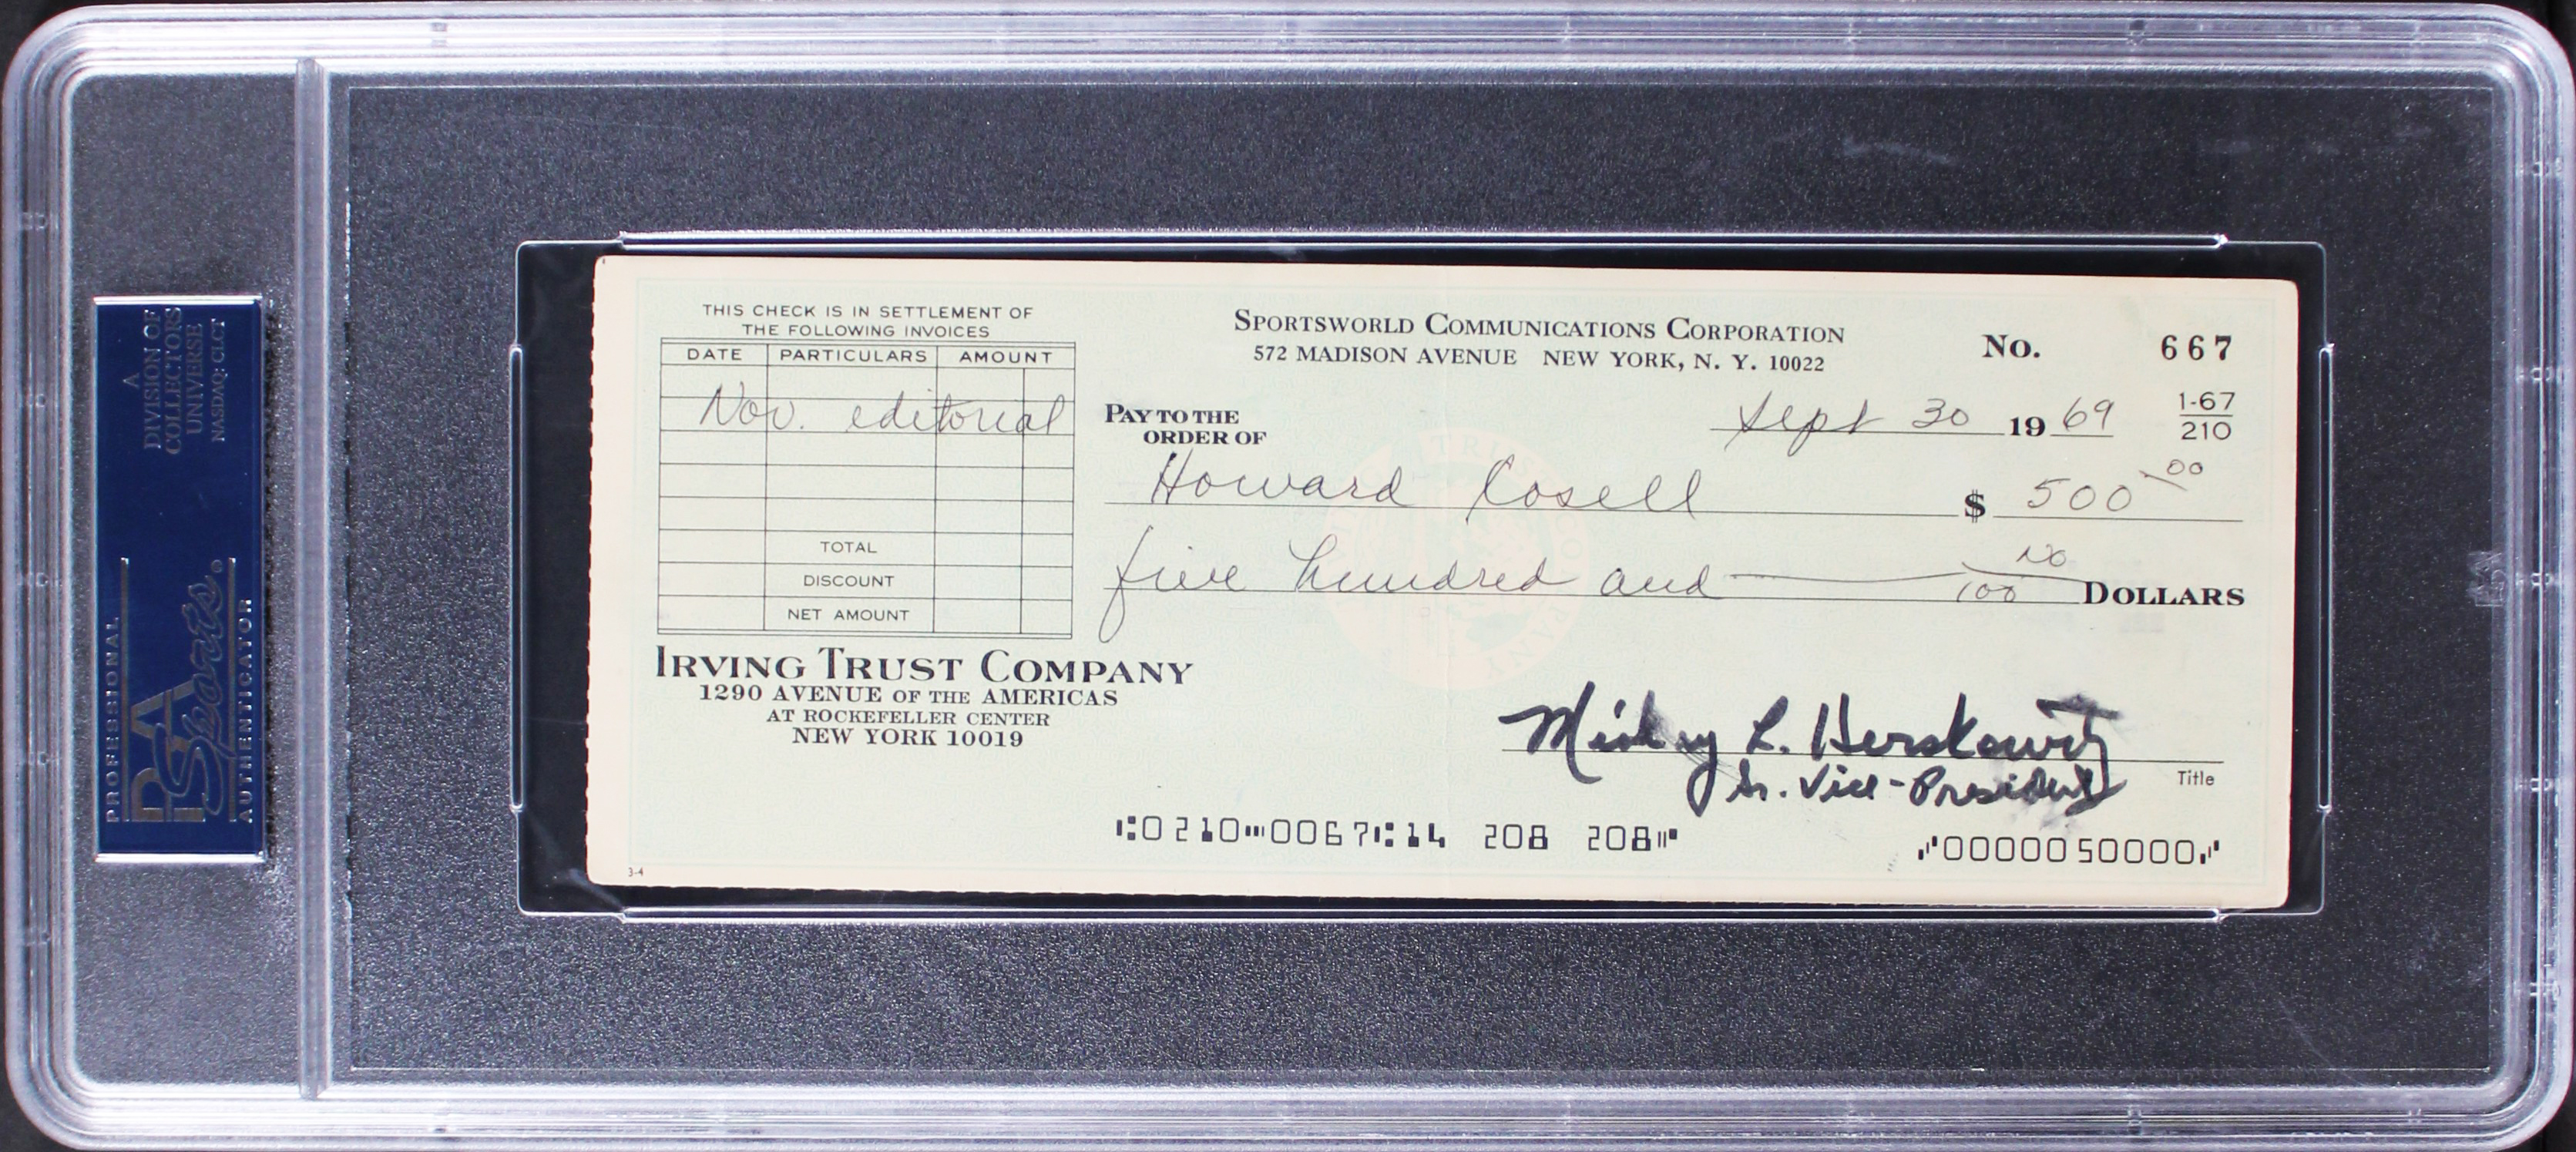 A
DIVISION OF
COLLECTORS
UNIVERSE
NASDAQ: CLCT
PROFESSIONAL
PSA
Sports
AUTHENTICATOR
THIS CHECK IS IN SETTLEMENT OF
THE FOLLOWING INVOICES
DATE PARTICULARS AMOUNT
Nov. editorial
TOTAL
DISCOUNT
NET AMOUNT
SPORTSWORLD COMMUNICATIONS CORPORATION
572 MADISON AVENUE NEW YORK, N. Y. 10022
No. 667
Sept 30 19 69
1-67
210
PAY TO THE
ORDER OF
Howard Cosell $ 500 00
five hundred and no/100 DOLLARS
IRVING TRUST COMPANY
1290 AVENUE OF THE AMERICAS
AT ROCKEFELLER CENTER
NEW YORK 10019
Mickey L. Herskowitz
Sr. Vice-President
Title
⑆0210⑉0067⑆14 208 208⑈
⑇0000050000⑇
3-4